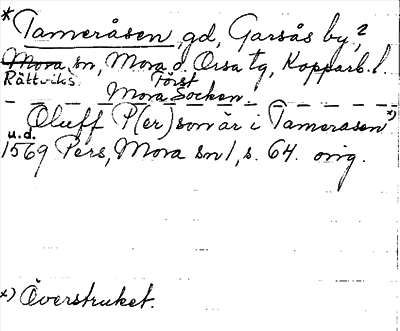 *Tameråsen, gd, Garsås by,²
Mora sn, Mora d. Orsa tg, Kopparb. l.
Rättviks Först
Mora Socken.
Oluff P(er)son är i Tamerasen *)
u.d.
1569 Pers, Mora sn 1, s. 64. orig.
*) Överstruket.